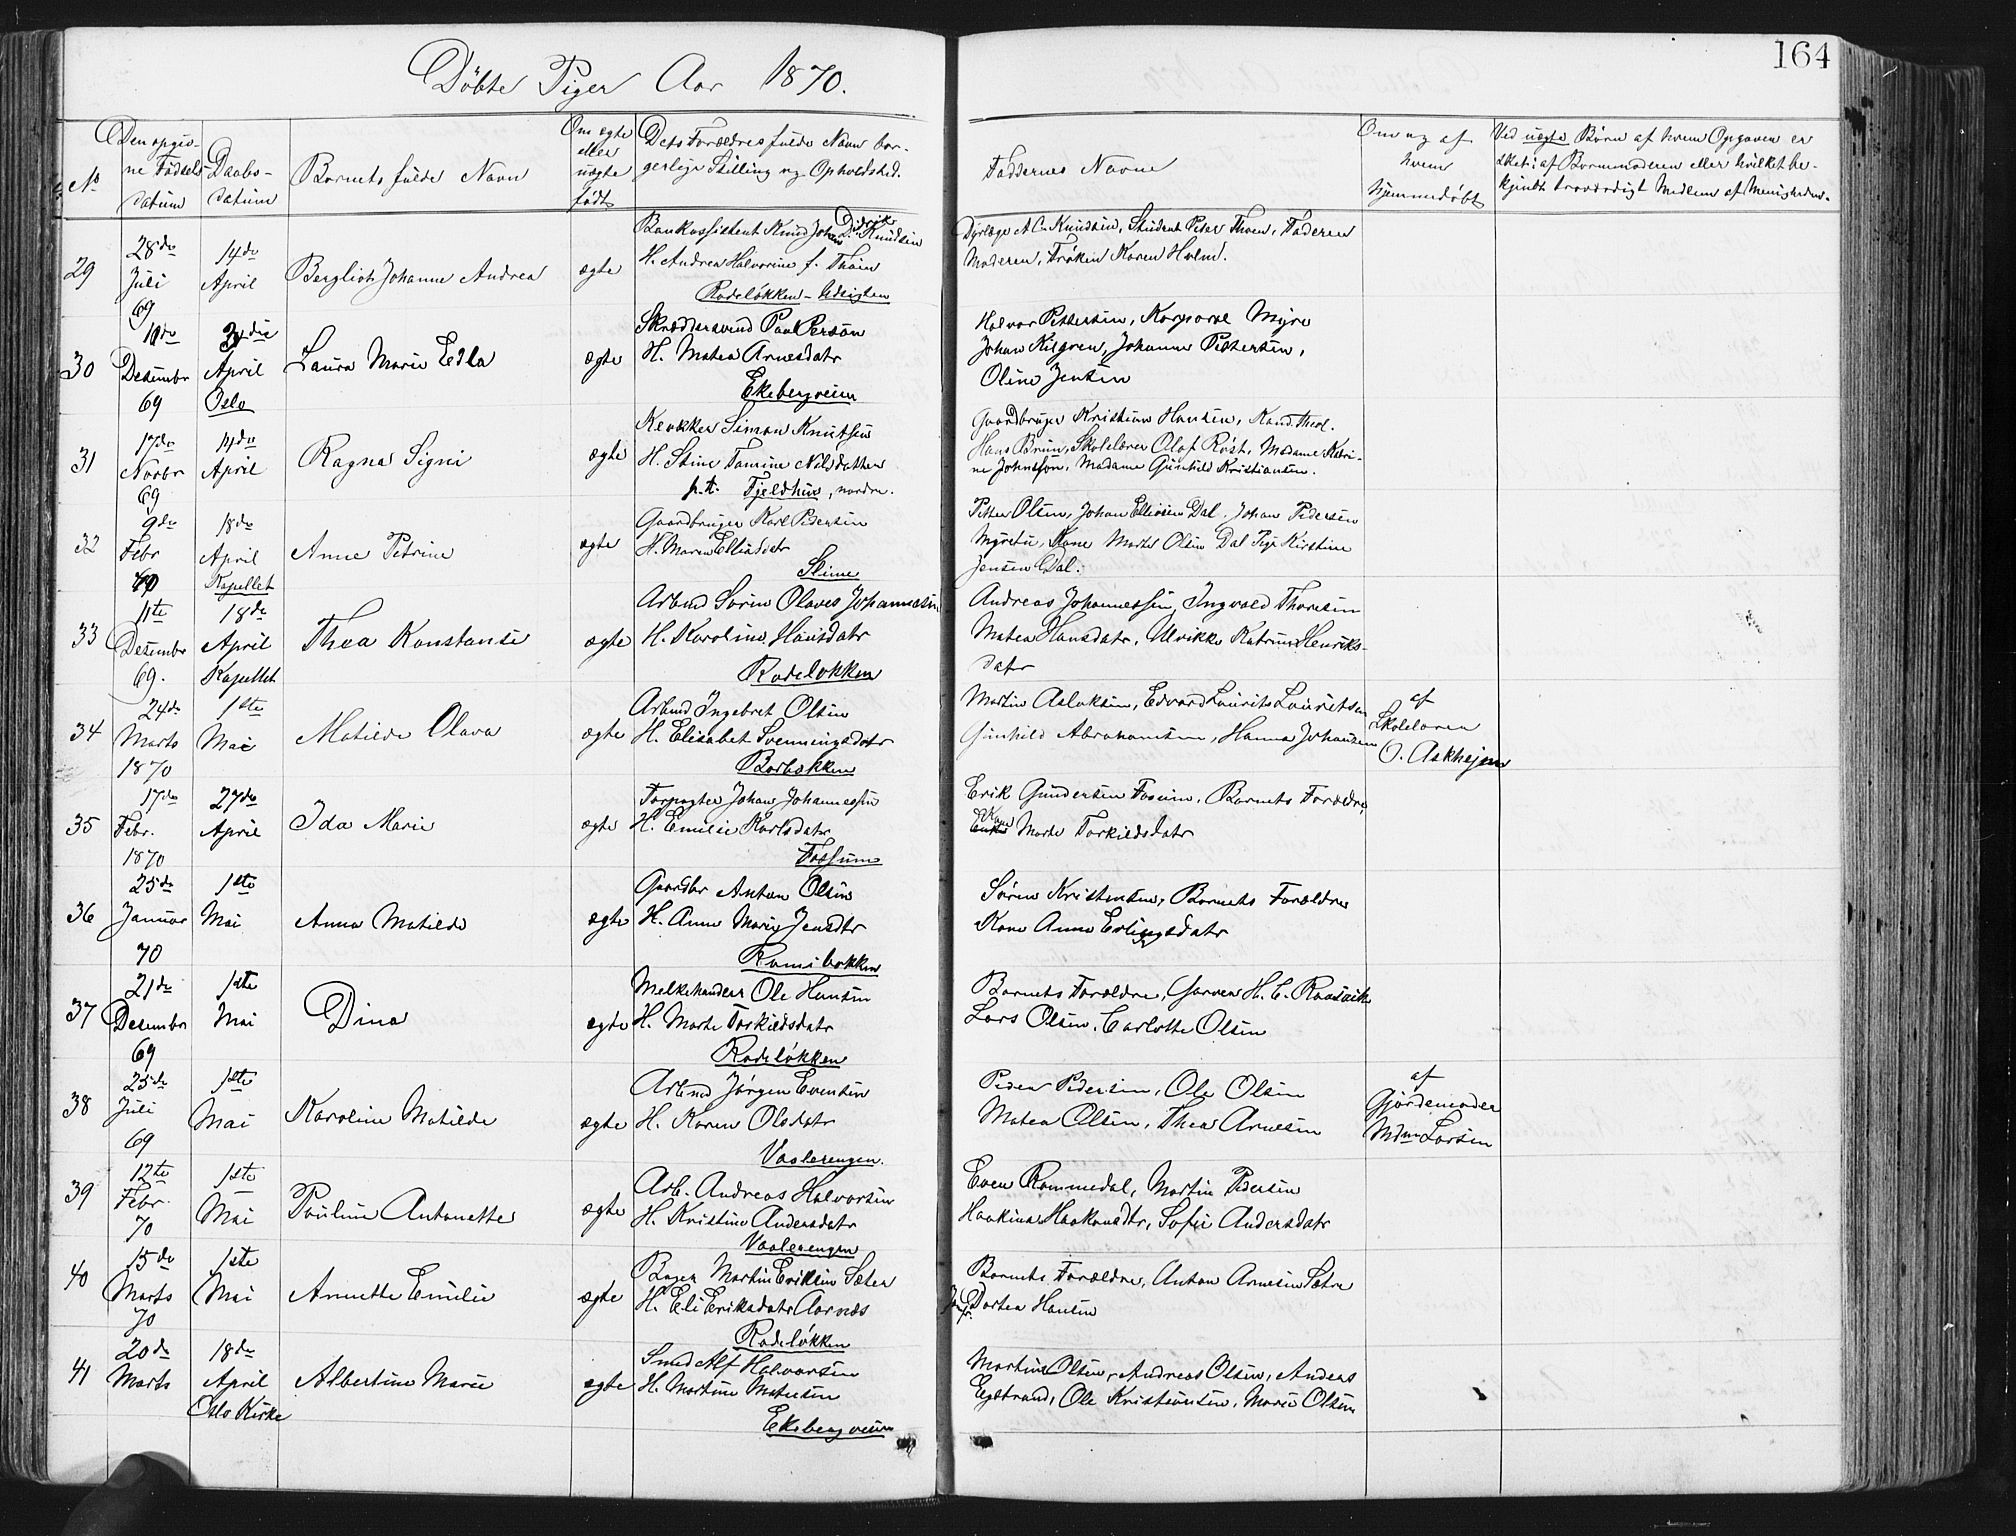 Döbte Piger Aar 1870.
164
No
Den opgiv-
ne Fødsels
datum
Daabs-
datum
Barnets fulde Navn
Om ægte
eller
uægte
født
Dets Forældres fulde Navn bor-
gerlige Stilling og Opholdsted.
Faddernes Navne
Om og af
hvem
hjemmedøbt
Ved uægte Børn af hvem Opgaven er
sket: af Barnemoderen eller hvilket be-
kjendt troværdigt Medlem af Menigheden.
29
28de
Juli
69
14de
April
Bergliot Johanne Andrea
ægte
Bankassistent Knud Johan Didrik Knudsen
H. Andrea Halvorine f. Thoen
Rodeløkken - Udsigten
Dyrlæge A C. Knudsen, Student Peter Thoen, Faderen
Moderen, Frøken Karen Holm.
30
10de
Desember
69
3die
April
Oslo
Laura Marie Edla
ægte
Skræddersvend Paul Person
H. Matea Arnesdatr
Ekebergveien
Halvor Pettersen, Korporal Myre
Johan Kilgren, Johanne Pettersen,
Oline Jensen
31
17de
Novbr
69
14de
April
Ragna Signi
ægte
Simon Knutsen
H. Stine Tomine Nilsdatter
p.t. Fjeldhus, nordre.
Gaardbruger Kristian Hansen, Kand. Theol.
Hans Bruun, Skolelærer Olaf Røst, Madame Katri-
ne Johnssøn, Madame Gunhild Kristiansen.
32
9de
Febr
70
18de
April
Kapellet
Anne Petrine
ægte
Gaardbruger Karl Pedersen
H. Maren Eliasdatr
Slime
Petter Olsen, Johan Eliesen Dal. Johan Pedersen
Myretu, Kone Marte Olsen Dal Pige Kirstine
Jensen Dal.
33
11te
Desember
69.
18de
April
Kapellet
Thea Konstanse
ægte
Arbmd Søren Olaves Johannesen
H. Karoline Hansdatr
Rodeløkken
Andreas Johannessen, Ingvald Thoresen
Matea Hansdatr, Ulrikke Katrine Henriks-
datr
34
24de
Marts
1870
1ste
Mai
Matilde Olava
ægte
Arbmd Ingebret Olsen
H. Elisabet Svenningsdatr
Barbakken
Martin Aslaksen, Edvard Laurits Lauritsen
Gunhild Abrahamsen, Hanna Johansen
af
Skolelærer
O. Askhejm
35
17de
Febr.
1870
27de
April
Ida Marie
ægte
Forpagter Johan Johannessen
H. Emilie Karlsdatr
Fossum
Erik Gundersen Fosum, Barnets Forældre,
Kone Marte Torkildsdatr
36
25de
Januar
70
1ste
Mai
Anna Matilde
ægte
Gaardbr Anton Olsen
H. Anne Marie Jensdtr
Søren Kristensen, Barnets Forældre
Kone Anne Erlingsdatr
37
21de
Desember
69
1ste
Mai
Dina
ægte
Melkehandler Ole Hansen
H. Marte Torkildsdatr
Rodeløkken
Barnets Forældre, Garver H. C.
Lars Olsen, Carlotte Olsen
38
25de
Juli
69
1ste
Mai
Karoline Matilde
ægte
Arbmd Jørgen Evensen
H. Karen Olsdatr
Vaalerengen.
Peder Pedersen, Ole Olsen
Matea Olsen, Thea Arnesen
af
Gjordemoder
Mdm Larsen
39
12te
Febr.
70
1ste
Mai
Pauline Antonette
ægte
Arb. Andreas Halvorsen
H. Kristine Andersdatr
Vaalerengen
Even Rommedal, Martin Pedersen
Haakine Haakonsdtr, Sofie Andersdatr
40
15de
Marts
70
1ste
Mai
Annette Emilie
ægte
Bager Martin Eriksen Sæter
H. Eli Eriksdatr Aarnæs
Rodeløkken
Barnets Forældre, Anton Arnesen Sætre
Dortea Hansen
41
20de
Marts
18de
April
Oslo Kirke
Albertine Marie
ægte
Smed Alf Halvorsen
H. Martine Matesen
Ekebergveien
Martin Olsen, Andreas Olsen, Anders
Egstrand, Ole Kristiansen, Marie Olsen